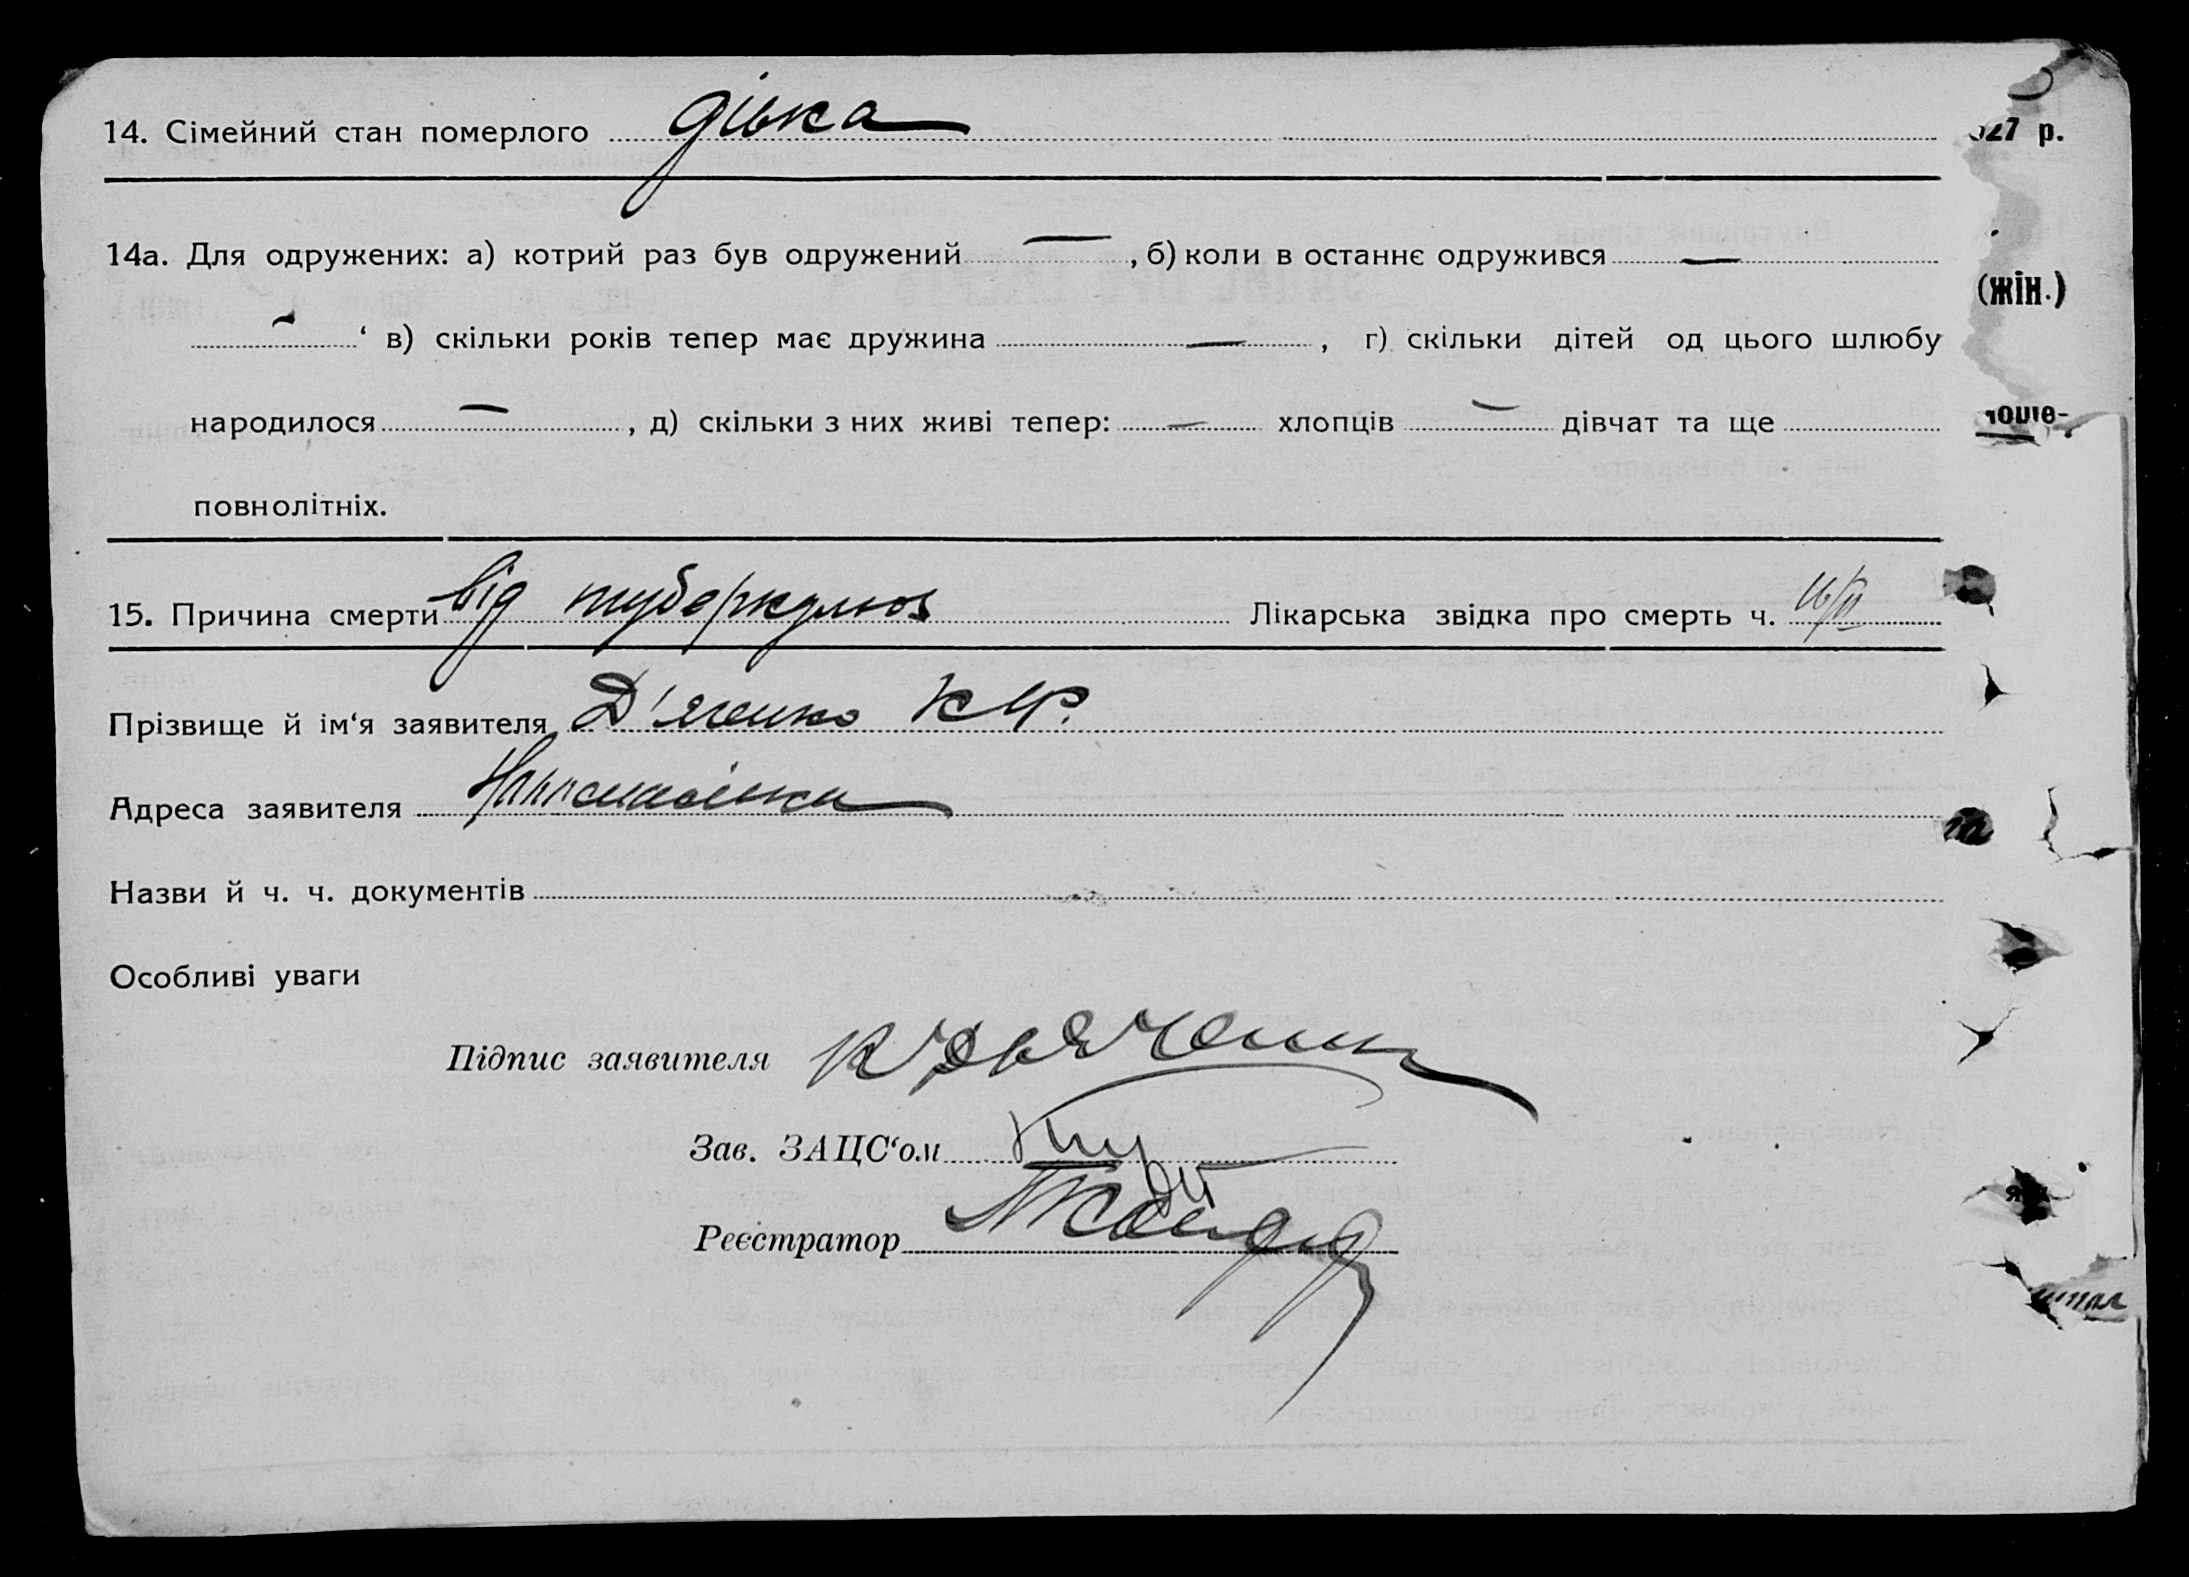 14. Сімейний стан померлого дівка
27 р.
14а. Для одружених: а) котрий раз був одружений —, б) коли в останнє одружився —
(жін.)
— ‘ в) скільки років тепер має дружина —, г) скільки дітей од цього шлюбу
народилося —, д) скільки з них живі тепер: — хлопців — дівчат та ще
повнолітніх.
15. Причина смерти від туберкульоз Лікарська звідка про смерть ч.
Прізвище й ім‘я заявителя Д'яченко К
Адреса заявителя
Назви й ч. ч. документів
Особливі уваги
Підпис заявителя
Зав. ЗАЦС‘ом
Реєстратор